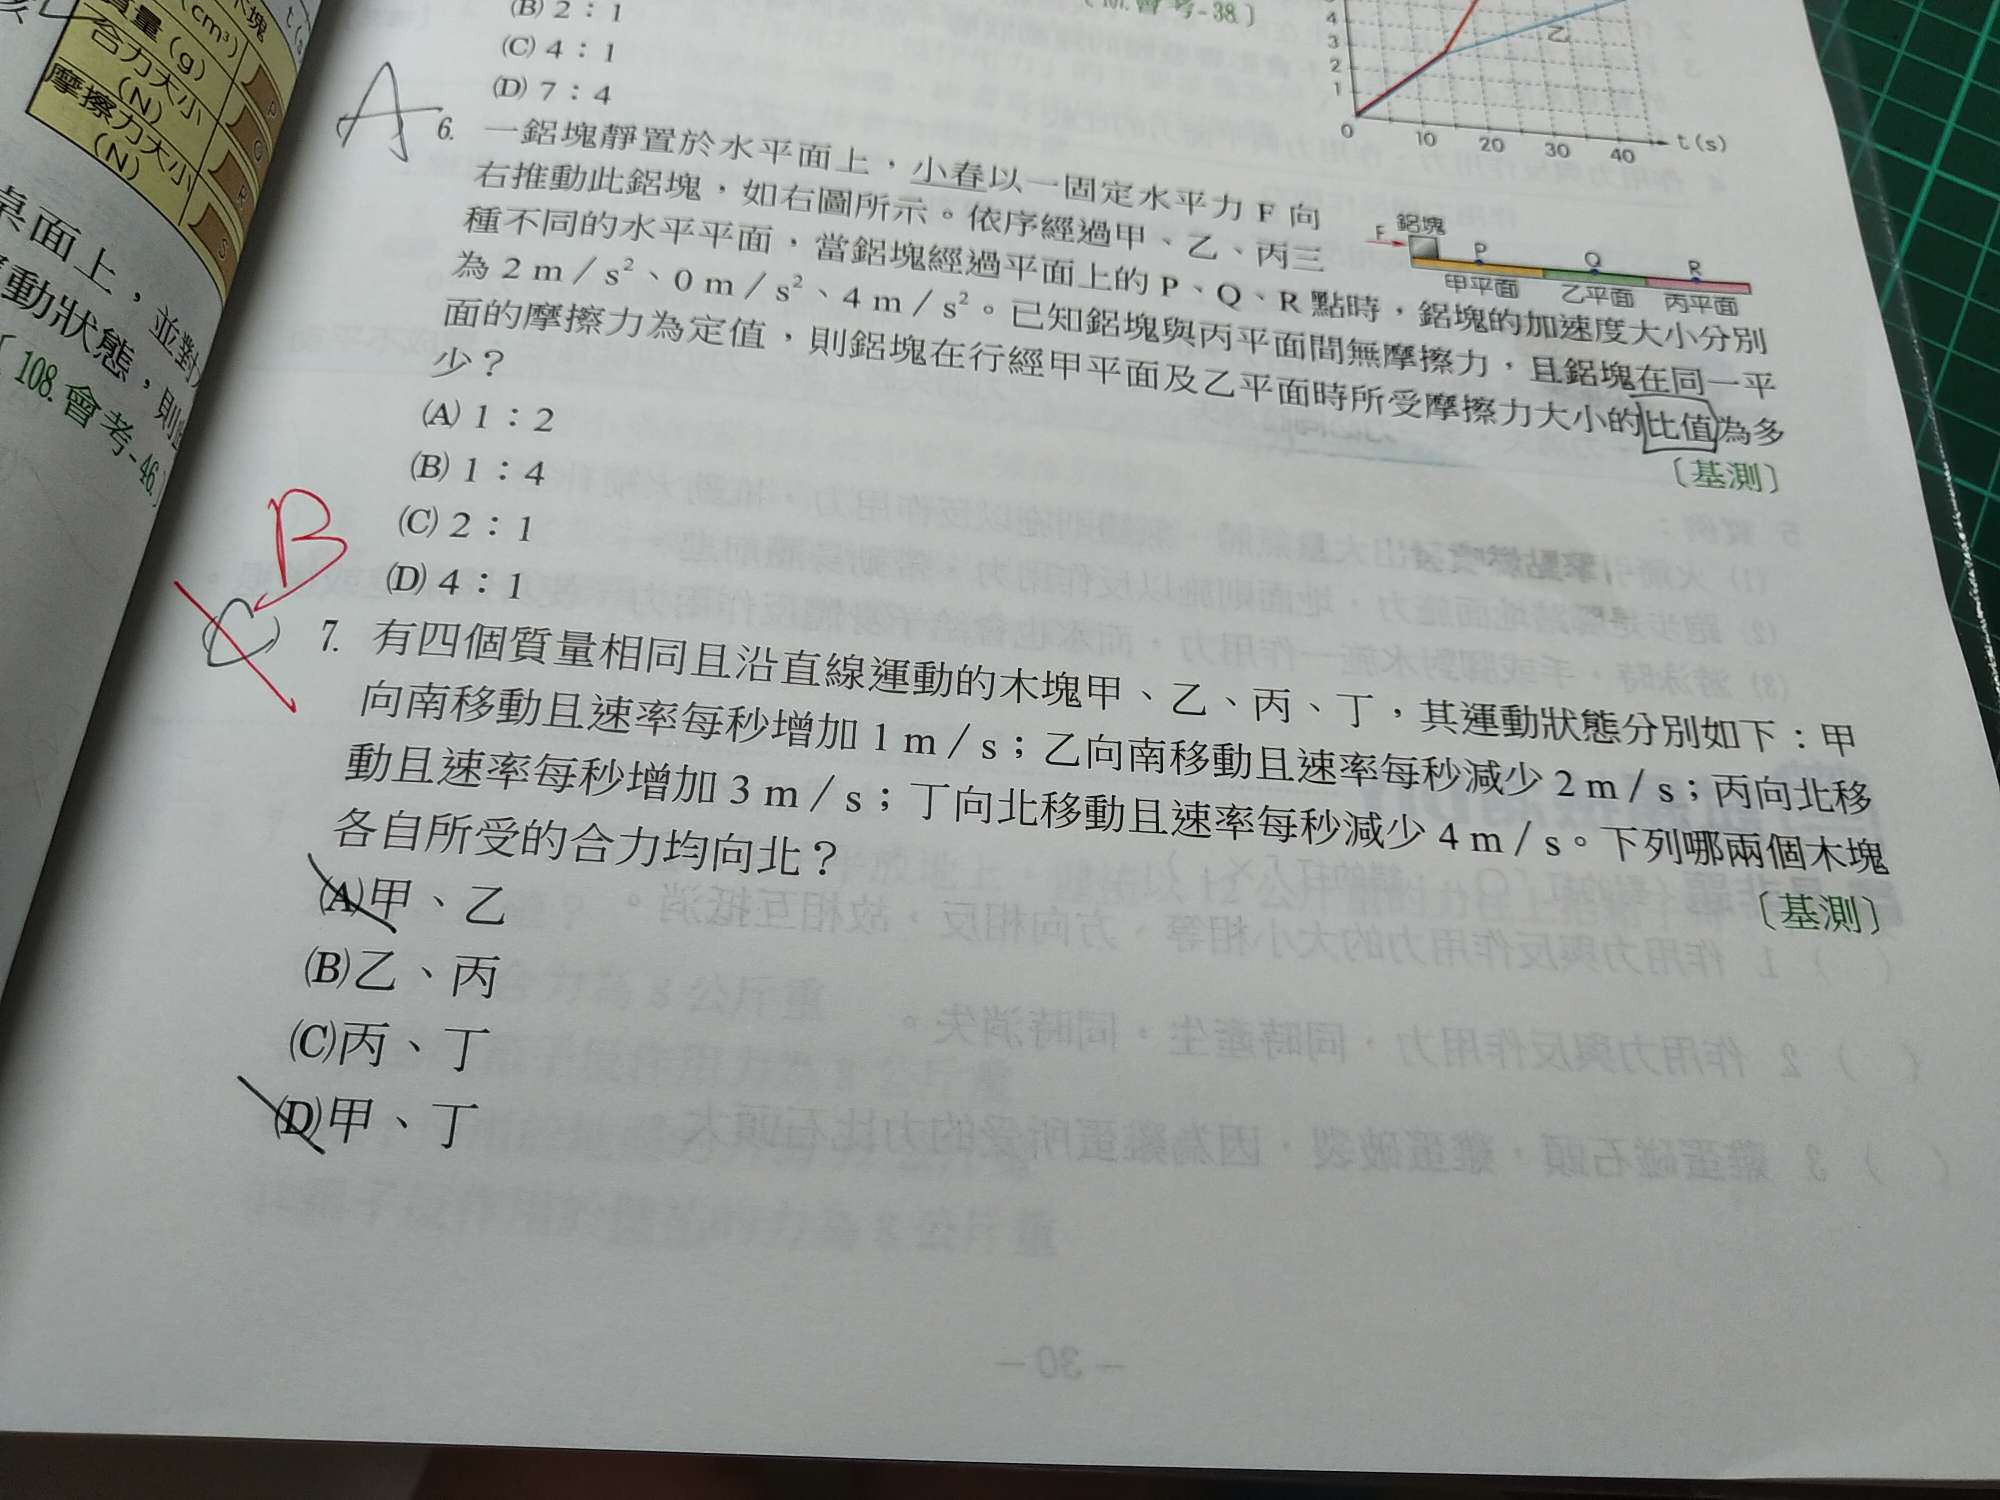 木塊
(cm³)
質量(g)
合力大小
(N)
摩擦力大小
(N)
P
Q
R
S
桌面上，並對
動狀態，則
〔108.會考-46.〕
(B) 2：1
(C) 4：1
(D) 7：4
會考-38.〕
4
3
2
1
0
10
20
30
40
t(s)
乙
A
6. 一鋁塊靜置於水平面上，小春以一固定水平力 F 向
右推動此鋁塊，如右圖所示。依序經過甲、乙、丙三
種不同的水平平面，當鋁塊經過平面上的 P、Q、R 點時，鋁塊的加速度大小分別
為 2 m／s²、0 m／s²、4 m／s²。已知鋁塊與丙平面間無摩擦力，且鋁塊在同一平
面的摩擦力為定值，則鋁塊在行經甲平面及乙平面時所受摩擦力大小的比值為多
少？
〔基測〕
F
鋁塊
P
Q
R
甲平面
乙平面
丙平面
(A) 1：2
(B) 1：4
(C) 2：1
(D) 4：1
B
C
7. 有四個質量相同且沿直線運動的木塊甲、乙、丙、丁，其運動狀態分別如下：甲
向南移動且速率每秒增加 1 m／s；乙向南移動且速率每秒減少 2 m／s；丙向北移
動且速率每秒增加 3 m／s；丁向北移動且速率每秒減少 4 m／s。下列哪兩個木塊
各自所受的合力均向北？
〔基測〕
(A)甲、乙
(B)乙、丙
(C)丙、丁
(D)甲、丁